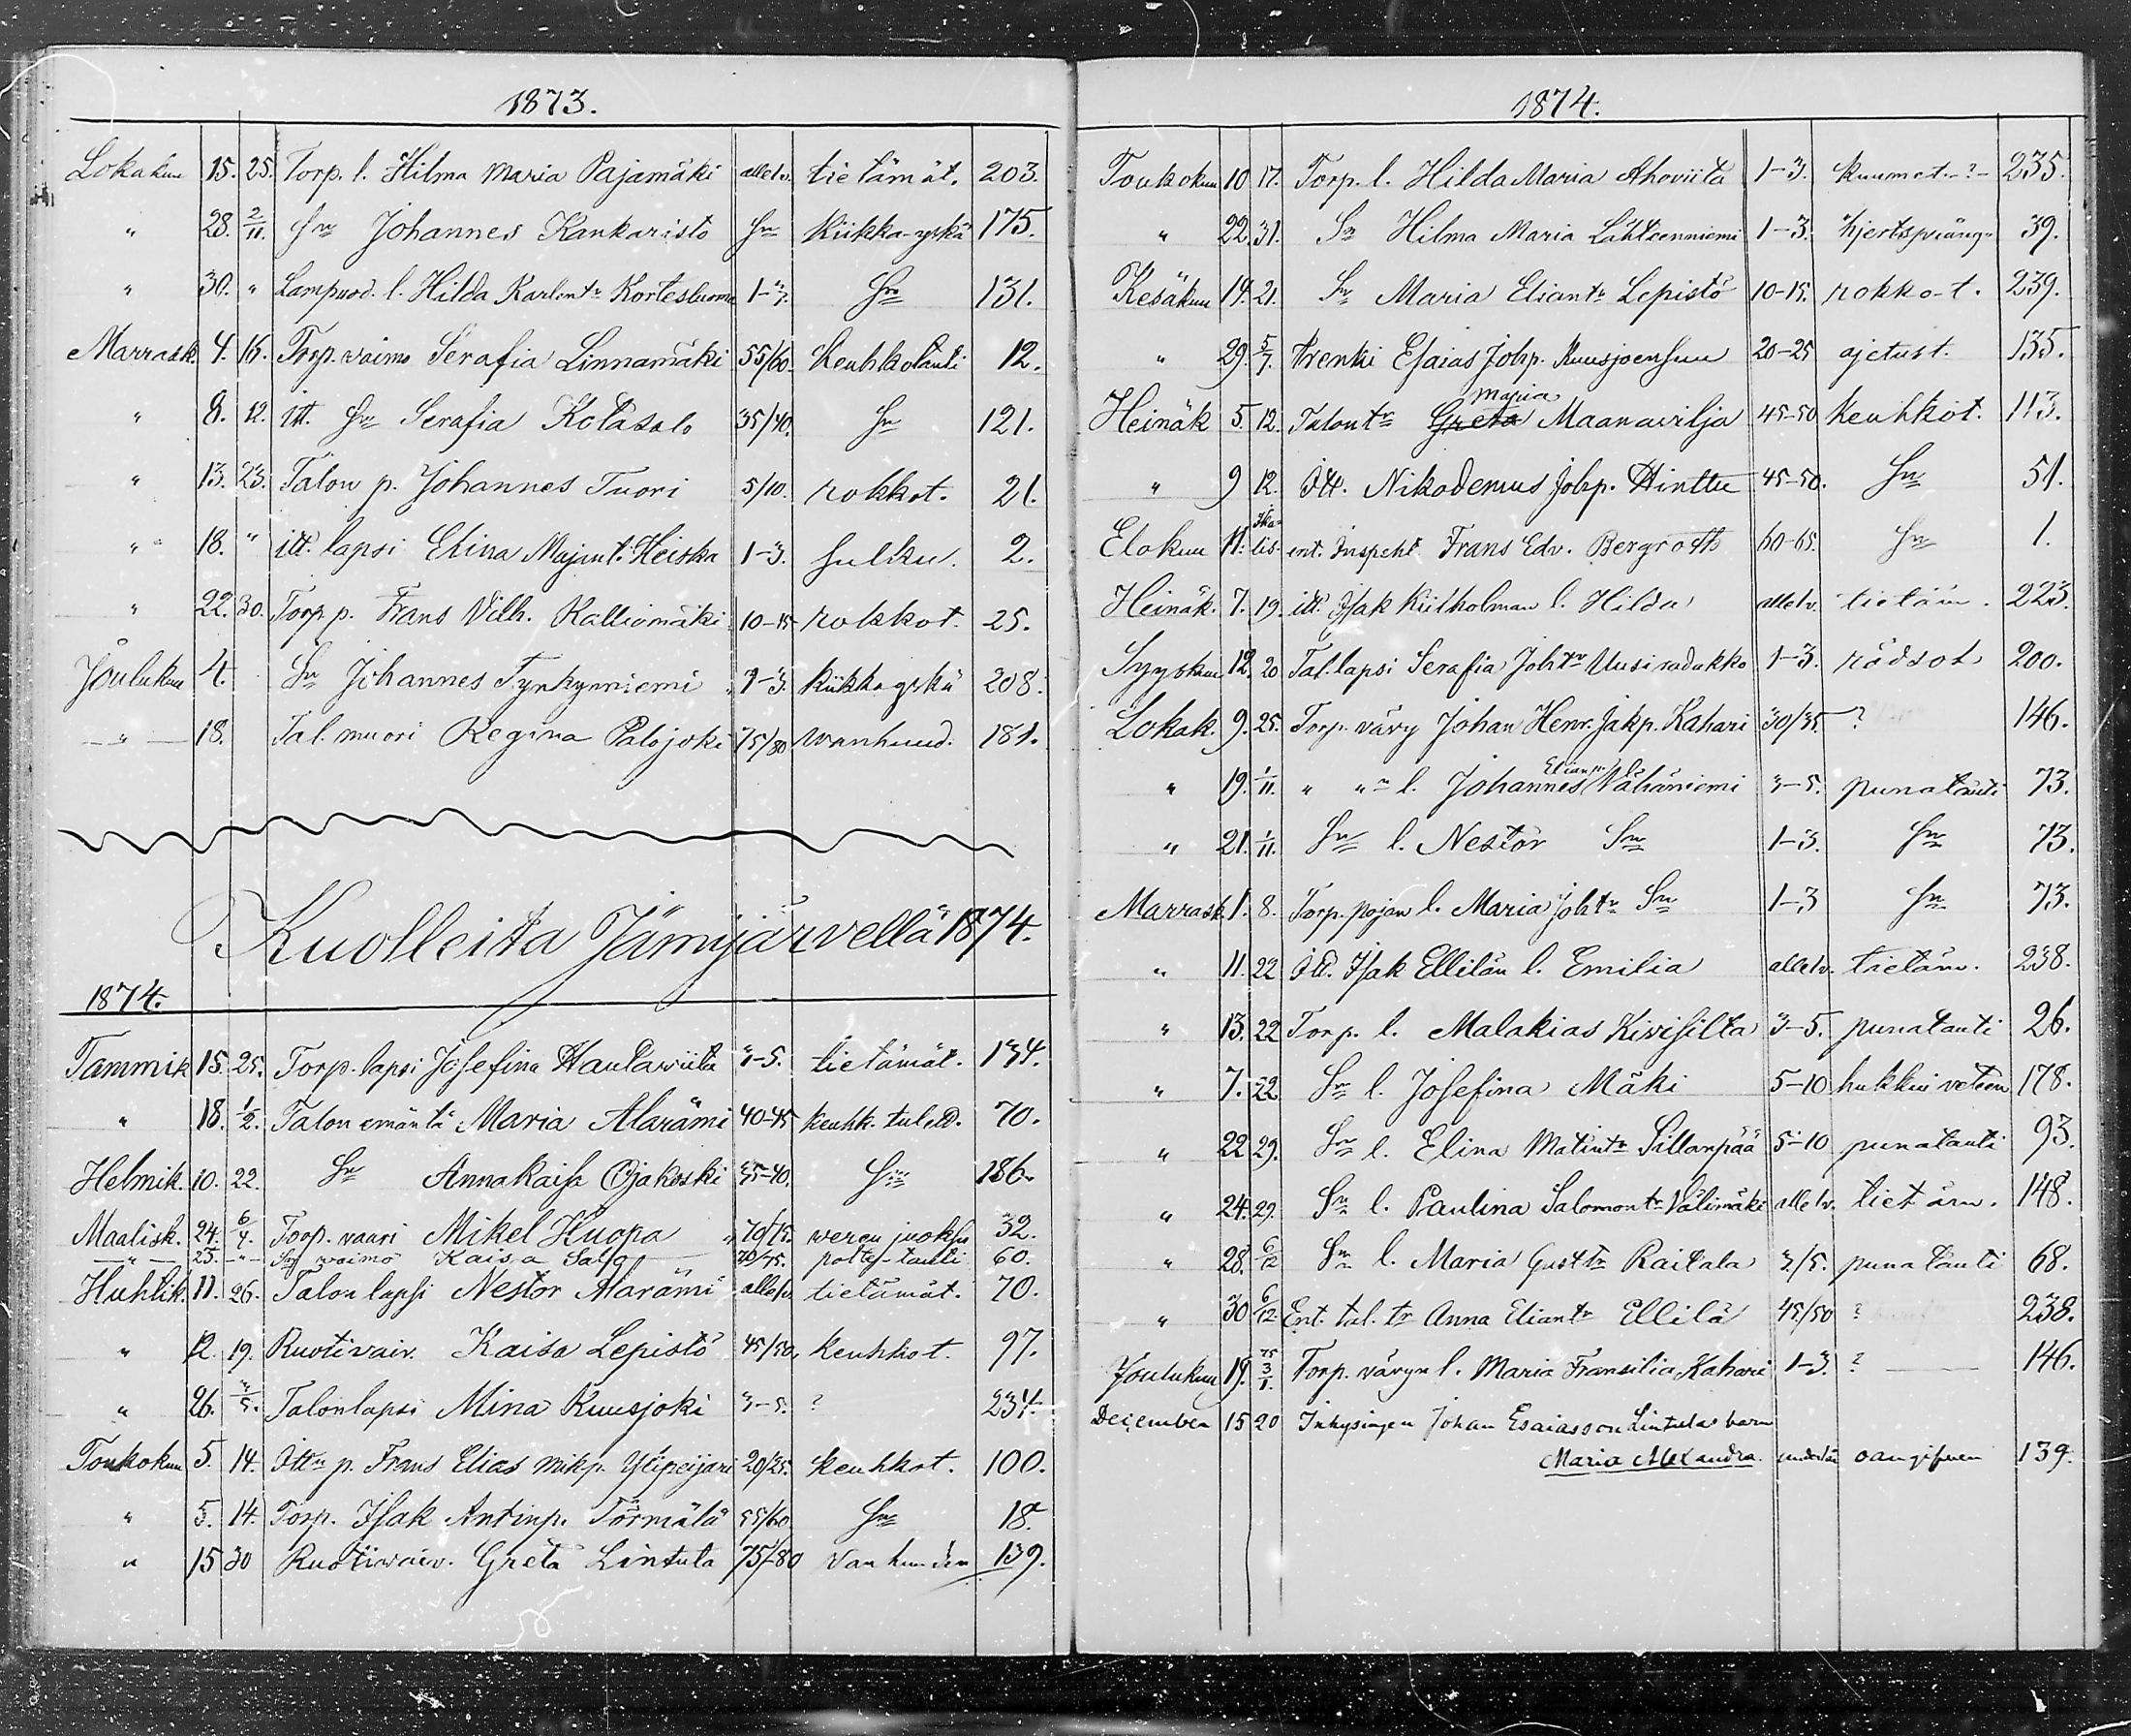 1873.
Lokakuu 15. 25. Torp. l. Hilma Maria Pajamäki alle 1v. tietämät. 203.
" 28. 2/11. Sn Johannes Kankaristo Sn kiikka yskä 175.
" 30. " Lampuod. l. Hilda Karlontr Kortesluoma 1-3. Sn 131.
Marrask. 4. 16. Torp. vaimo Serafia Linnamäki 55/60. keuhkotauti 12.
" 8. 12. itt. Sn Serafia Kotasalo 35/40. Sn 121.
" 13. 23. Talon p. Johannes Tuori 5/10. rokkot. 21.
" 18. " itt. lapsi Elina Majant. Heiska 1-3. 2.
" 22. 30. Torp p. Frans Vilh. Kalliomäki 10-15 rokkot. 25.
Joulukuu 4. Sn Johannes Tynkynniemi 1-3. kiikka yskä 208.
" 18. Tal. muori Regina Palojoki 75/80 wanhuud. 181.
Kuolleita Jämijärvellä 1874.
1874.
Tammik 15. 25. Torp. lapsi Josefina Hautawiita 3-5. tietämät. 134.
" 18. 1/2. Talon emäntä Maria Alarämi 40-45 keuhk. tuled. 70.
Helmik. 10. 22. Sn Annakaisa Ojakoski 35-40. Sn 186.
Maalisk. 24. 6/4. Torp. vaari Mikel Huopa 70/75. veren juoksu 32.
" 25. " Sn waimo Kaisa Salo 70/75. poltto-tauti 60.
Huhtik. 11. 26. Talon lapsi Nestor Alarämi alle 1v. tietämät. 70.
" 12. 19. Ruotivaiv. Kaisa Lepistö 45/50, keuhkot. 97.
" 26. 3/5. Talonlapsi Mina Kuusjoki 3-5. ? 234.
Toukokuu 5. 14. Ittn p. Frans Elias Mikp. Ylipeijari 20/25. keuhkot. 100.
" 5. 14. Torp. Isak Antinp. Törmälä 55/60 Sn 18.
" 15 30 Ruotiwaiv. Greta Lintula 75/80 Vanhuuden 139.
1874.
Toukokuu 10 17. Torp. l. Hilda Maria Ahoviita 1-3. kuumet. ? 235.
" 22. 31. Sn Hilma Maria Lähteenniemi 1-3. hjertspräng 39.
Kesäkuu 14. 21. Sn Maria Eliantr Lepistö 10-15. rokkot. 239.
" 29. 5/7. trenki Esaias Johp. Kuusjoensuu 20-25 ajetust. 135.
Maria
Heinäk 5. 12. Talontr Greta Maanavilja 45-50 keuhkot. 113.
" 9 12. Itt. Nikodemus Johp. Hinttu 45-50. Sn 51.
Elokuu 11. Ikalis. ent. Inspeht Frans Edv. Bergroth 60-65. Sn 1.
Heinäk. 7. 19. itt. Isak Kiilholman l. Hilda alle 1v. tietäm. 223.
Syyskuu 12. 20 Tal. lapsi Serafia Johtr Uusiradukko 1-3. rödsot 200.
Lokak. 9. 25. Torp. vävy Johan Henr. Jakp. Kahari 30/35. ? 146.
Elianp.
" 19. 1/11. " " l. Johannes Vähäniemi 3-5. punatauti 73.
" 21. 1/11. Sn l. Nestor Sn 1-3. Sn 73.
Marrask. 1. 8. Torp. pojan l. Maria Johtr Sn 1-3 Sn 73.
" 11. 22 Itt. Isak Ellilän l. Emilia alle 1v. tietäm. 238.
" 13. 22 Torp. l. Malakias Kivisilta 3-5. punatauti 26.
" 7. 22 Sn l. Josefina Mäki 5-10 hukkui veteen 178.
" 22 29. Sn l. Elina Matintr Sillanpää 5-10 punatauti 93.
" 24. 29. Sn l. Paulina Salomontr Välimäki alle 1v. tietäm. 148.
" 28. 6/12 Sn l. Maria Gusttr Raitala 3/5. punatauti 68.
" 30 6/12. Ent. tal. tr Anna Eliantr Ellilä 45/50 ? 238.
Joulukuu 19. 75 3/1. Torp. vävyn l. Maria Fransilia Kahari 1-3. ? 146.
December 15 20 Inhysingen Johan Esaiasson Lintulas barn
Maria Alexandra. under 1 år oangifven 139.